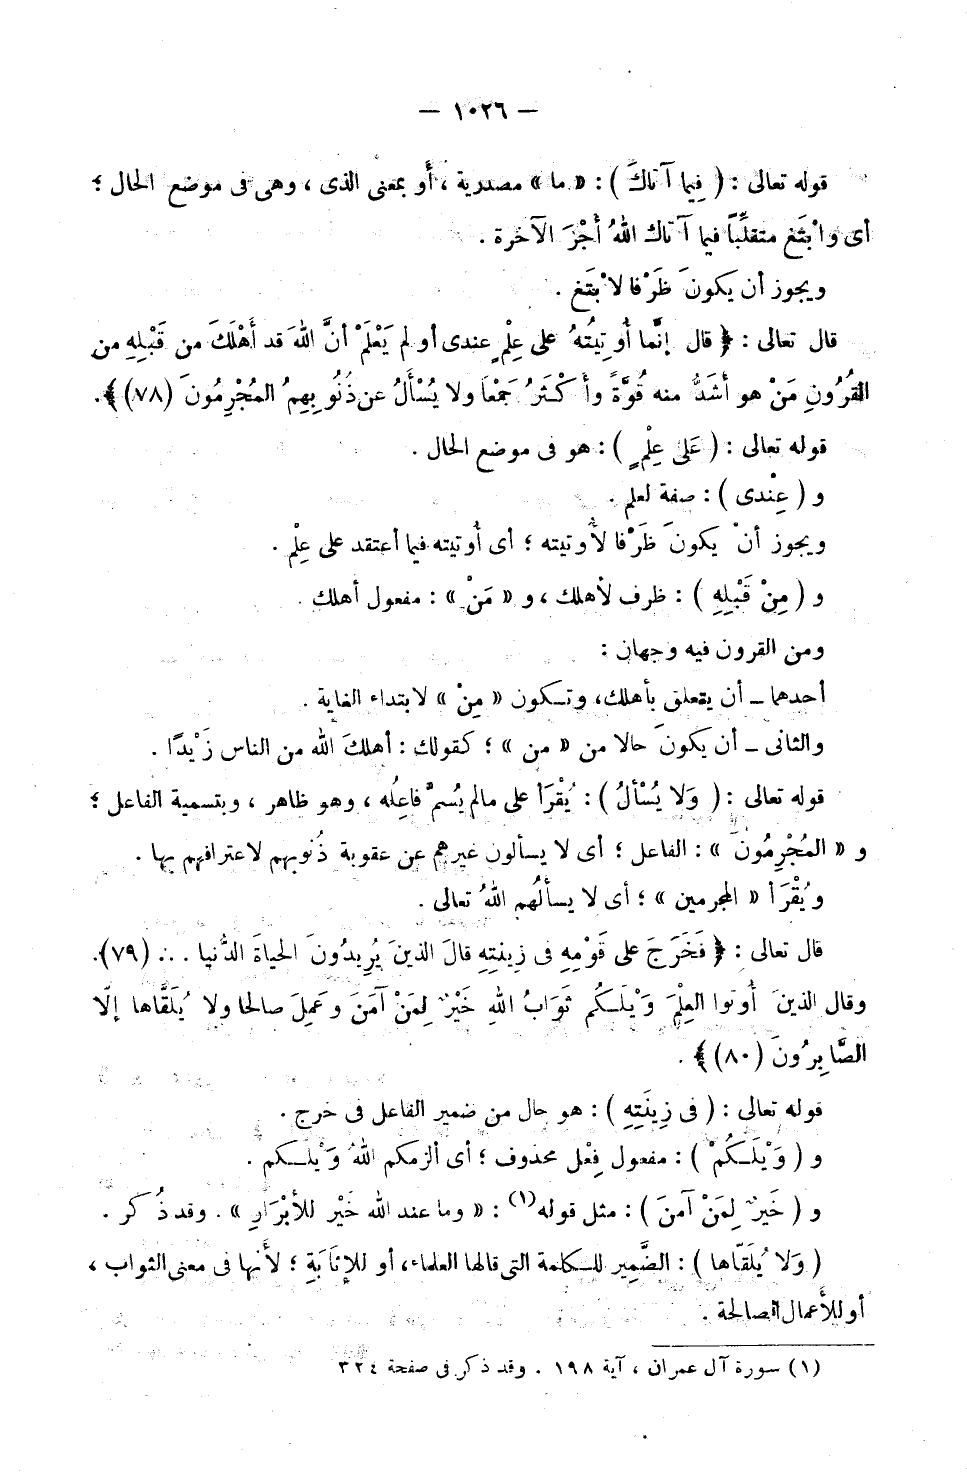 — ١٠٢٦ —
قوله تعالى : ( فِيما آتاكَ ) : « ما » مصدرية ، أو بمعنى الذى ، وهى فى موضع الحال ؛
أى وابْتَغِ متقلِّباً فيما آتاك اللهُ أَجْرَ الآخرة .
ويجوز أن يكونَ ظَرْفا لابْتَغِ .
قال تعالى : ﴿ قال إنَّما أُوتِيتُهُ على عِلْمٍ عندى أو لم يَعْلَمْ أنَّ اللهَ قد أَهْلَكَ من قَبْلِهِ من
القُرُونِ مَنْ هو أشَدُّ منه قُوَّةً وأكْثَرُ جَمْعاً ولا يُسْأَلُ عن ذُنُوبِهِمُ المُجْرِمُونَ (٧٨) ﴾ .
قوله تعالى : ( عَلَى عِلْمٍ ) : هو فى موضع الحال .
و ( عِنْدى ) : صفة لعلم .
ويجوز أنْ يكونَ ظَرْفا لأُوتيته ؛ أى أُوتيته فيما أعتقد على عِلْم .
و ( مِنْ قَبْلِهِ ) : ظرف لأهلك ، و « مَنْ » : مفعول أهلك .
ومن القرون فيه وجهان :
أحدهما ــ أن يتعلق بأهلك، وتكون « مِنْ » لابتداء الغاية .
والثانى ــ أن يكونَ حالا من « من » ؛ كقولك : أهلكَ الله من الناس زَيْدًا .
قوله تعالى : ( وَلا يُسْأَلُ ) : يُقْرَأ على مالم يُسمَّ فاعِلُه ، وهو ظاهر ، وبتسمية الفاعل ؛
و « المُجْرِمُونَ » : الفاعل ؛ أى لا يسألون غيرهم عن عقوبة ذُنوبهم لاعترافهم بها .
ويُقْرَأ « المجرمين » ؛ أى لا يسألُهم اللهُ تعالى .
قال تعالى : ﴿ فَخَرَجَ على قَوْمِهِ فى زِينتِهِ قالَ الذينَ يُرِيدُونَ الحياةَ الدُّنيا ... (٧٩).
وقال الذينَ أُوتوا العِلْمَ وَيْلَكُم ثَوَابُ اللهِ خَيْرٌ لِمَنْ آمَنَ وعَمِلَ صالحا ولا يُلَقَّاها إلّا
الصَّابِرُونَ (٨٠) ﴾ .
قوله تعالى : ( فى زِينَتِهِ ) : هو حال من ضمير الفاعل فى خرج .
و ( وَيْلَكُمْ ) : مفعول فِعْل محذوف ؛ أى ألزمكم اللهُ وَيْلَكم .
و ( خَيرٌ لِمَنْ آمنَ ) : مثل قوله(١) : « وما عند الله خَيْر للأبْرَارِ » . وقد ذُكر .
( وَلا يُلَقّاها ) : الضَّمِير للكلمة التى قالها العلماء، أو للإثَابَةِ ؛ لأَنها فى معنى الثواب ،
أو للأَعمال الصالحة .
(١) سورة آل عمران ، آية ١٩٨ . وقد ذكر فى صفحة ٣٢٤